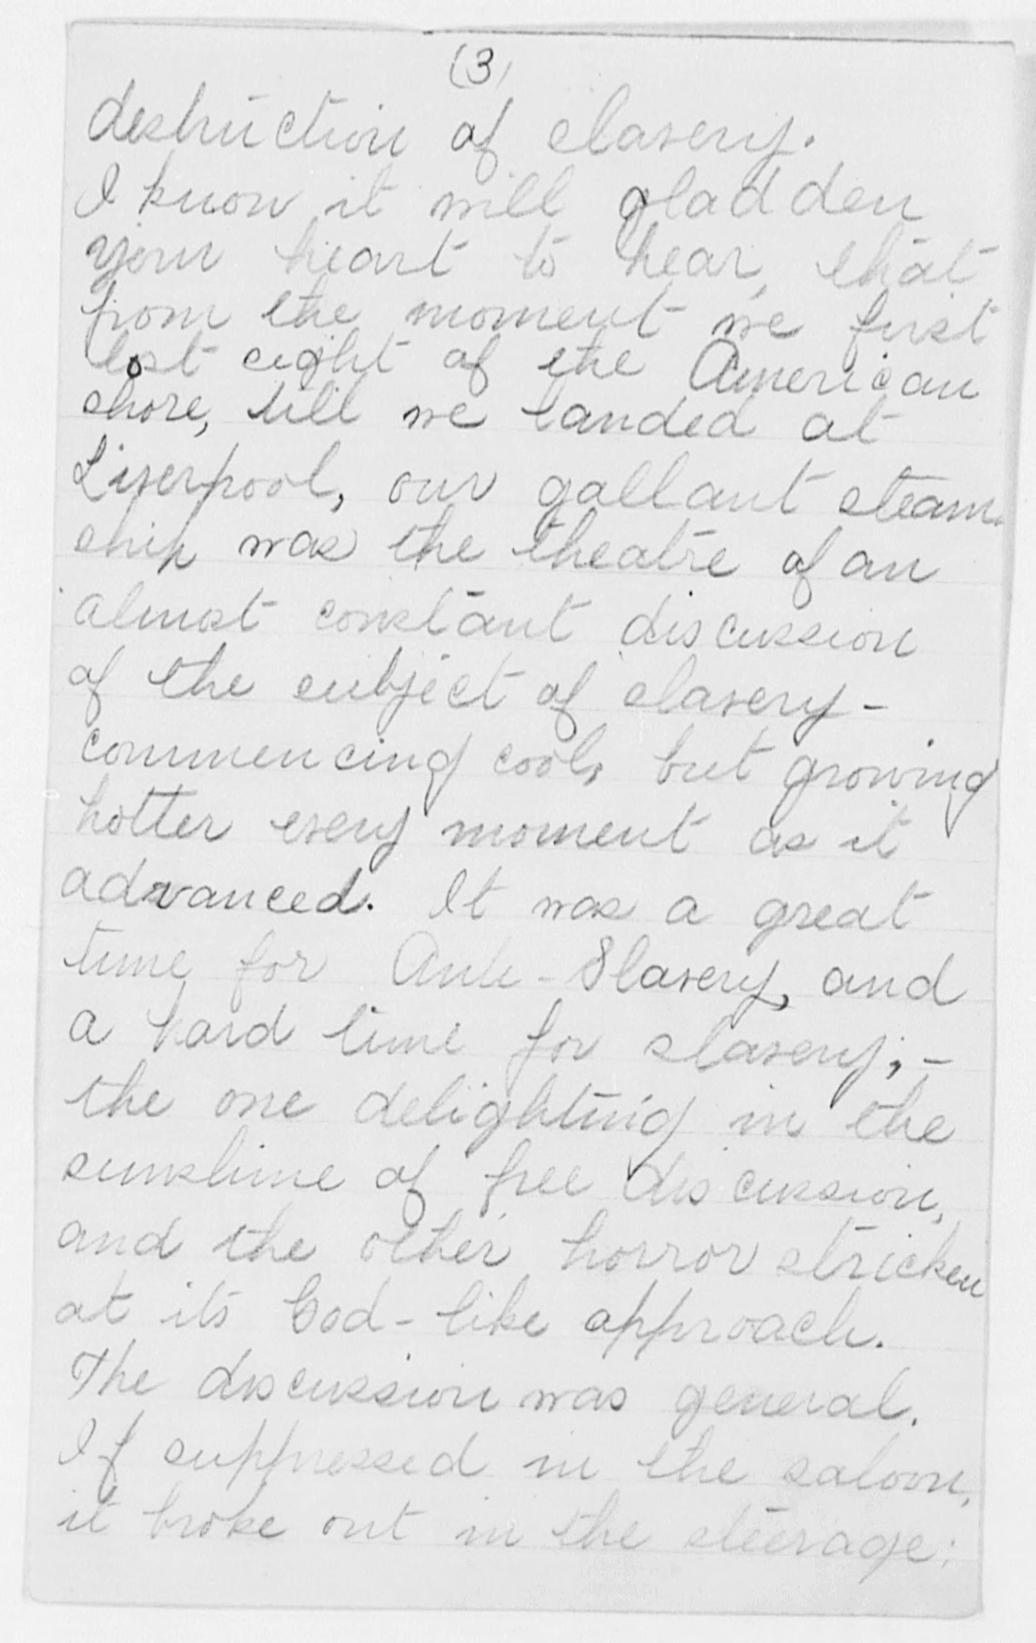 (3)
destruction of slavery.
I know it will gladden
your heart to hear, that
from the moment we first
lost sight of the American
shore, till we landed at
Liverpool, our gallant steam-
ship was the theatre of an
almost constant discussion
of the subject of slavery -
commencing cool, but growing
hotter every moment as it
advanced. It was a great
time for Anti-Slavery, and
a hard time for slavery; -
the one delighting in the
sunshine of free discussion,
and the other horror stricken
at its God-like approach.
The discussion was general.
If suppressed in the saloon,
it broke out in the steerage;